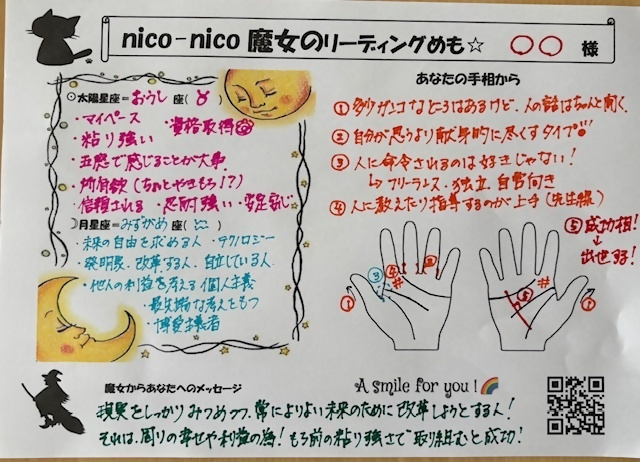 nico-nico 魔女のリーディングめも☆ ○○ 様
☉太陽星座=おうし 座(♉)
・マイペース
・粘り強い ・資格取得
・五感で感じることが大事
・所有欲(ちょっとやきもち!?)
・信頼される ・忍耐強い ・安定感
☽月星座=みずがめ 座(♒)
・未来の自由を求める人 ・テクノロジー
・発明家、改革する人、自立している人
・他人の利益を考える個人主義
・最先端な考えをもつ
・博愛主義者
あなたの手相から
① 多少ガンコなところはあるけど、人の話はちゃんと聞く。
② 自分が思うより献身的に尽くすタイプ!!
③ 人に命令されるのは好きじゃない!
↳フリーランス・独立、自営向き
④ 人に教えたり指導するのが上手(先生線)
⑤ 成功相!
↓
出世する!
① ③ ④ # ②
⑤ # ①
魔女からあなたへのメッセージ
A smile for you!
現実をしっかりみつめつつ、常によりよい未来のために改革しようとする人!
それは、周りの幸せや利益の為! もち前の粘り強さで取り組むと成功!